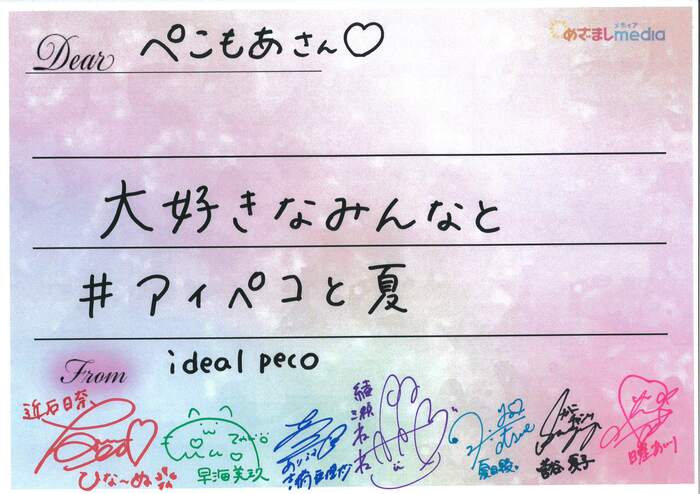 Dear ぺこもあさん♡
めざましmedia
メディア
大好きなみんなと
#アイペコと夏
From ideal peco
近石日奈
ひな〜ぬ
早海美玖
綾瀬ねね